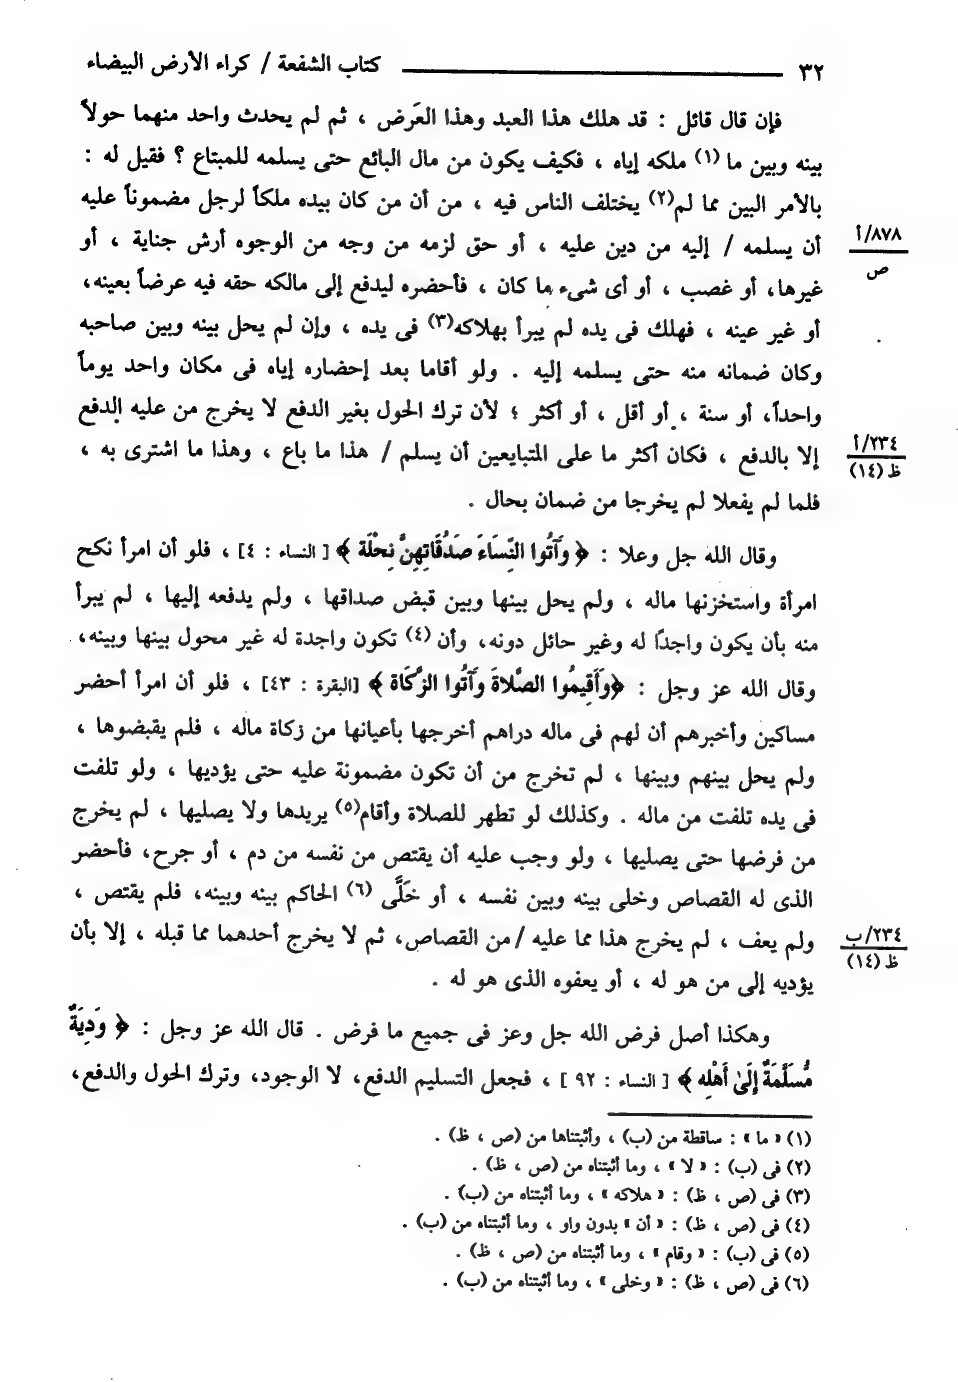 ٣٢ كتاب الشفعة / كراء الأرض البيضاء
فإن قال قائل : قد هلك هذا العبد وهذا العَرض ، ثم لم يحدث واحد منهما حولاً
بينه وبين ما (١) ملكه إياه ، فكيف يكون من مال البائع حتى يسلمه للمبتاع ؟ فقيل له :
بالأمر البين مما لم(٢) يختلف الناس فيه ، من أن من كان بيده ملكاً لرجل مضموناً عليه
أن يسلمه / إليه من دين عليه ، أو حق لزمه من وجه من الوجوه أرش جناية ، أو
٨٧٨/أ
ص
غيرها، أو غصب ، أو أى شىء ما كان ، فأحضره ليدفع إلى مالكه حقه فيه عرضاً بعينه،
أو غير عينه ، فهلك فى يده لم يبرأ بهلاكه(٣) فى يده ، وإن لم يحل بينه وبين صاحبه
وكان ضمانه منه حتى يسلمه إليه . ولو أقاما بعد إحضاره إياه فى مكان واحد يوماً
واحداً، أو سنة ، أو أقل ، أو أكثر ؛ لأن ترك الحول بغير الدفع لا يخرج من عليه الدفع
إلا بالدفع ، فكان أكثر ما على المتبايعين أن يسلم / هذا ما باع ، وهذا ما اشترى به ،
٢٣٤/أ
ظ (١٤)
فلما لم يفعلا لم يخرجا من ضمان بحال .
وقال الله جل وعلا : ﴿ وَآتُوا النِّسَاءَ صَدُقَاتِهِنَّ نِحْلَة ﴾ [ النساء : ٤] ، فلو أن امرأ نكح
امرأة واستخزنها ماله ، ولم يحل بينها وبين قبض صداقها ، ولم يدفعه إليها ، لم يبرأ
منه بأن يكون واجدًا له وغير حائل دونه، وأن (٤) تكون واجدة له غير محول بينها وبينه،
وقال الله عز وجل : ﴿وَأَقِيمُوا الصَّلاةَ وَآتُوا الزَّكَاة ﴾ [البقرة : ٤٣] ، فلو أن امرأ أحضر
مساكين وأخبرهم أن لهم فى ماله دراهم أخرجها بأعيانها من زكاة ماله ، فلم يقبضوها ،
ولم يحل بينهم وبينها ، لم تخرج من أن تكون مضمونة عليه حتى يؤديها ، ولو تلفت
فى يده تلفت من ماله . وكذلك لو تطهر للصلاة وأقام(٥) يريدها ولا يصليها ، لم يخرج
من فرضها حتى يصليها ، ولو وجب عليه أن يقتص من نفسه من دم ، أو جرح، فأحضر
الذى له القصاص وخلى بينه وبين نفسه ، أو خَلَّى (٦) الحاكم بينه وبينه، فلم يقتص ،
ولم يعف ، لم يخرج هذا مما عليه /من القصاص، ثم لا يخرج أحدهما مما قبله ، إلا بأن
٢٣٤/ب
ظ (١٤)
يؤديه إلى من هو له ، أو يعفوه الذى هو له .
وهكذا أصل فرض الله جل وعز فى جميع ما فرض . قال الله عز وجل : ﴿ وَدِيَةٌ
مُّسَلَّمَةٌ إِلَىٰ أَهْلِهِ ﴾ [ النساء : ٩٢ ] ، فجعل التسليم الدفع، لا الوجود، وترك الحول والدفع،
(١) « ما » : ساقطة من (ب) ، وأثبتناها من (ص ، ظ) .
(٢) فى (ب) : « لا » ، وما أثبتناه من (ص ، ظ) .
(٣) فى (ص ، ظ) : « هلاكه » ، وما أثبتناه من (ب) .
(٤) فى (ص ، ظ) : « أن » بدون واو ، وما أثبتناه من (ب) .
(٥) فى (ب) : « وقام » ، وما أثبتناه من (ص ، ظ) .
(٦) فى (ص ، ظ) : « وخلى » ، وما أثبتناه من (ب) .